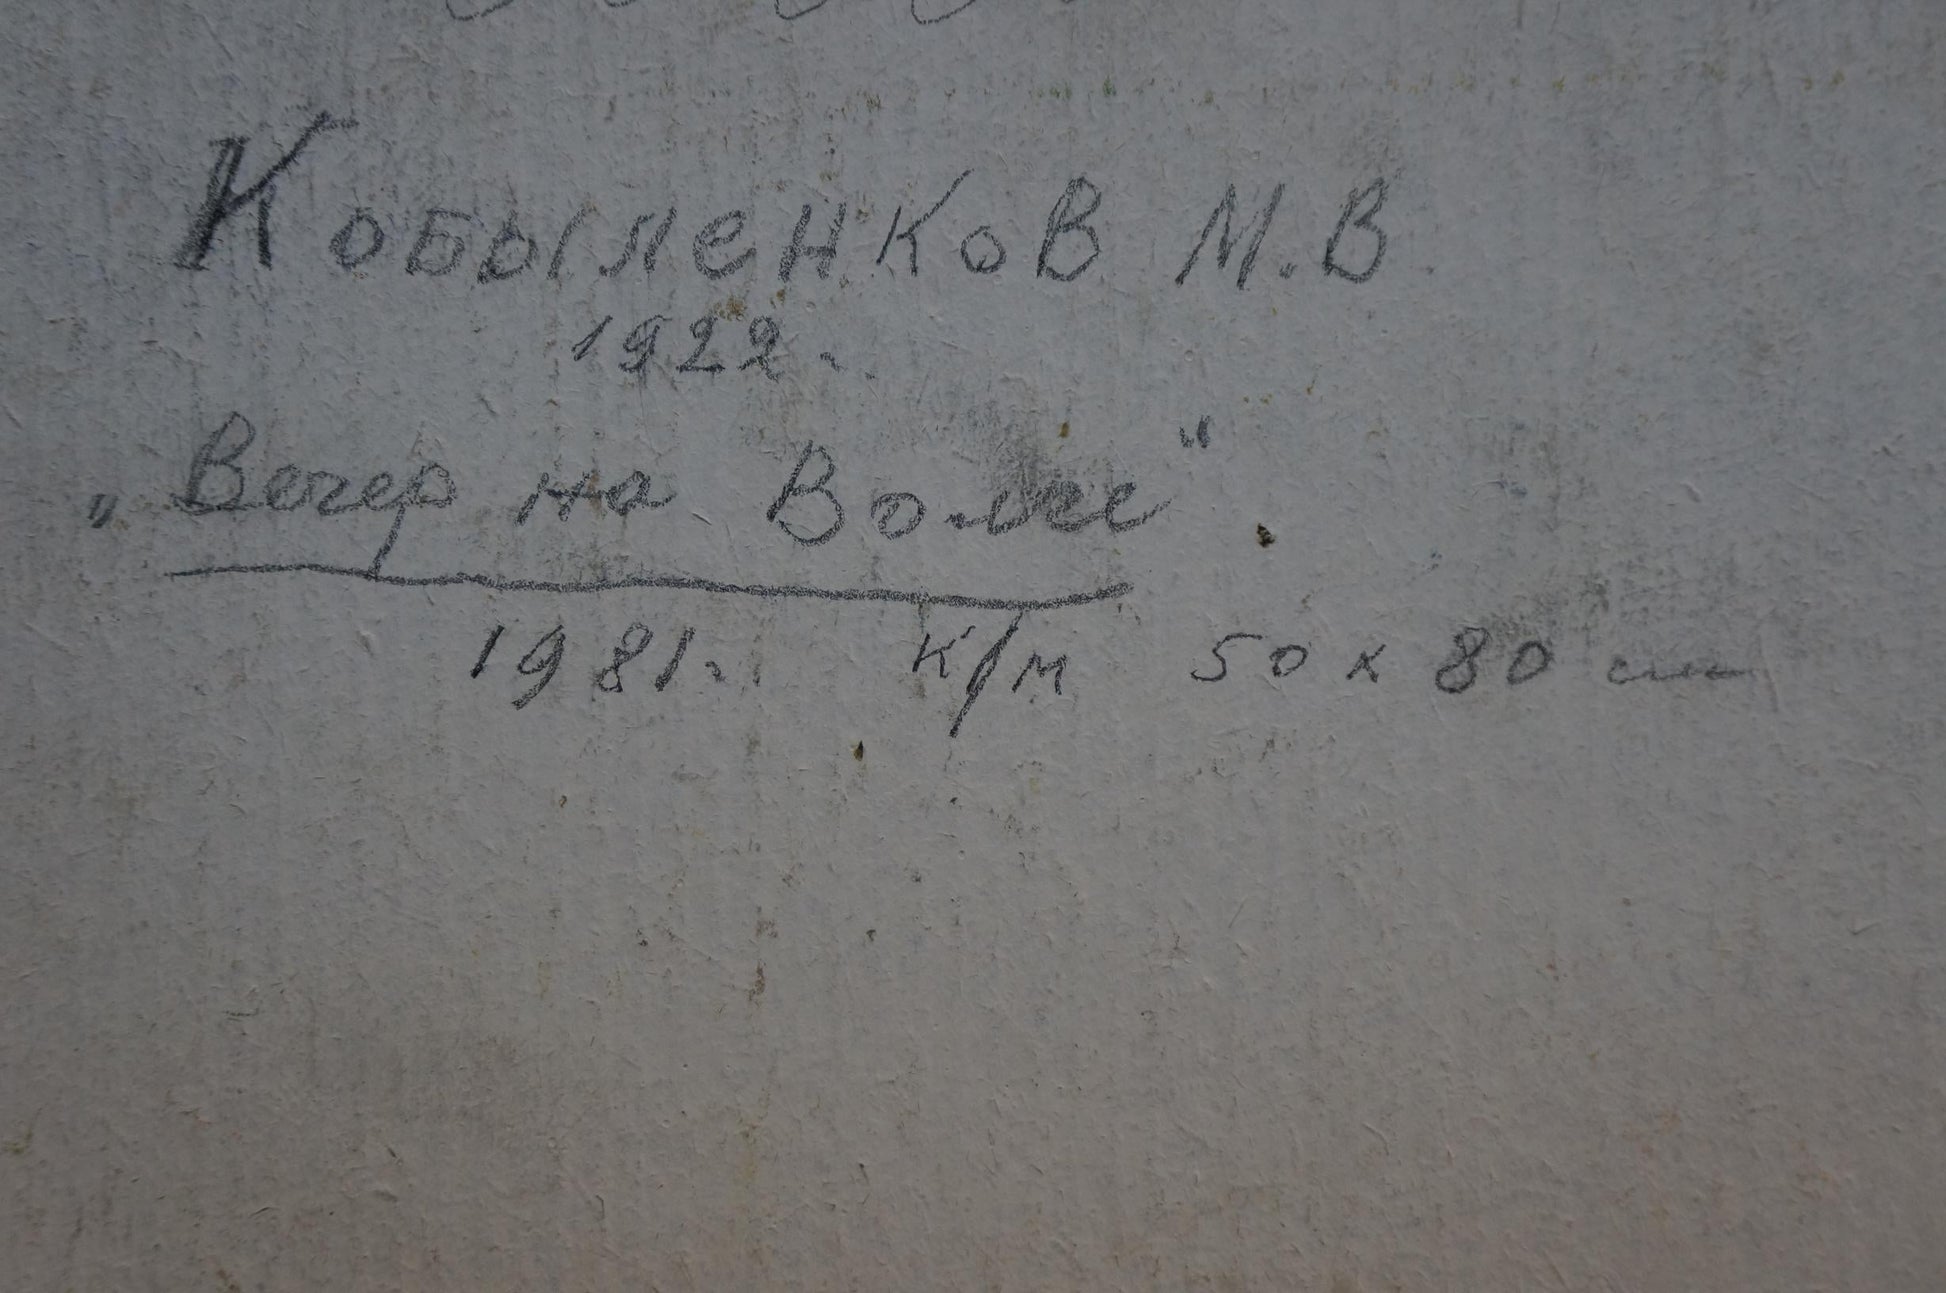 Кобыленков М.В
1922г.
„Вечер на Волге"
1981г. К/м 50 x 80 см